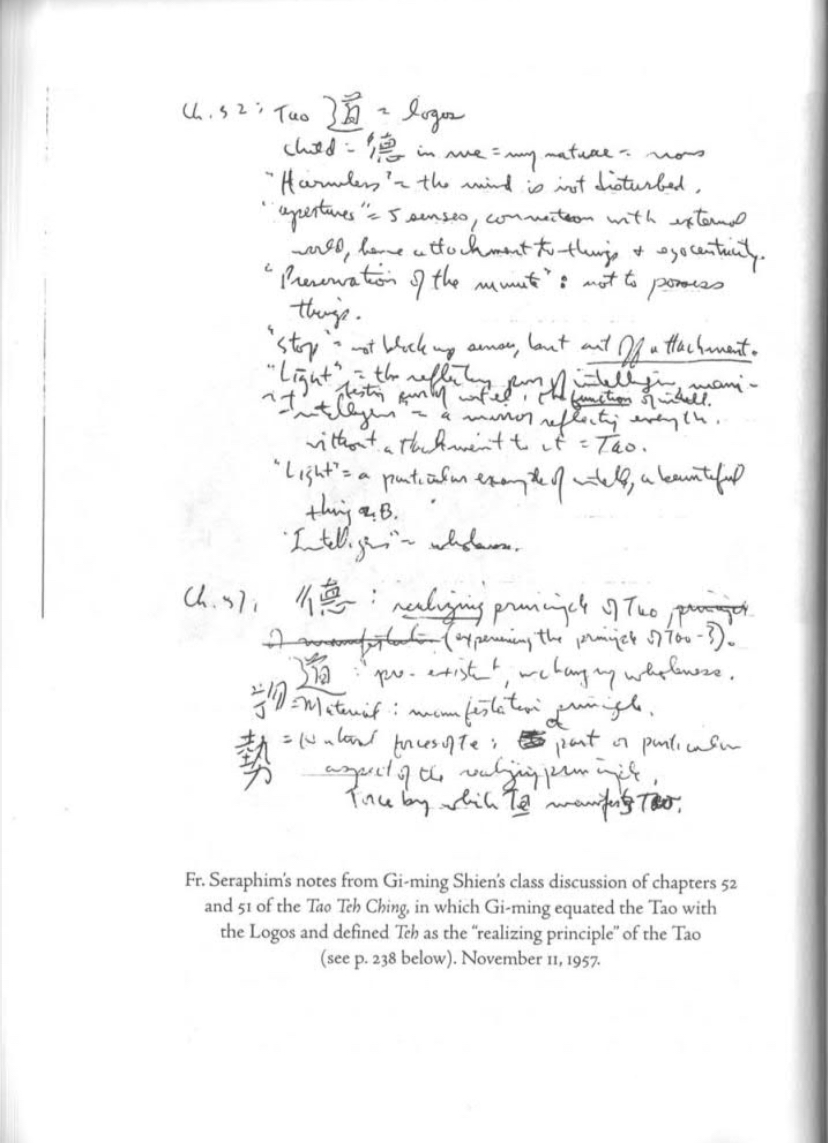 Ch. 52: Tao 道 = logos
child = 德 in me = my nature = nous
"Harmless" = the mind is not disturbed.
"apertures" = 5 senses, connection with external
world, hence attachment to things + egocentricity.
"Preservation of the minute": not to possess
things.
"Stop" = not block up senses, but cut off attachment.
"Light" = the reflecting power of intelligence, mani-
festing power of intel., the function of intell.
"Intelligence" = a mirror reflecting everyth.
without attachment to it = Tao.
"Light" = a particular example of intell, a beautiful
thing
"Intelligence" = wholeness.
Ch. 51, 德: realizing principle of Tao, principle
of manifestation (expressing the principle of Tao -?).
道: "pre-existent", unchanging wholeness.
物 = Material: manifestation principle.
勢 = Natural forces of Te: a part or particular
aspect of the realizing principle,
Force by which Te manifests Tao.
Fr. Seraphim's notes from Gi-ming Shien's class discussion of chapters 52
and 51 of the Tao Teh Ching, in which Gi-ming equated the Tao with
the Logos and defined Teh as the "realizing principle" of the Tao
(see p. 238 below). November 11, 1957.